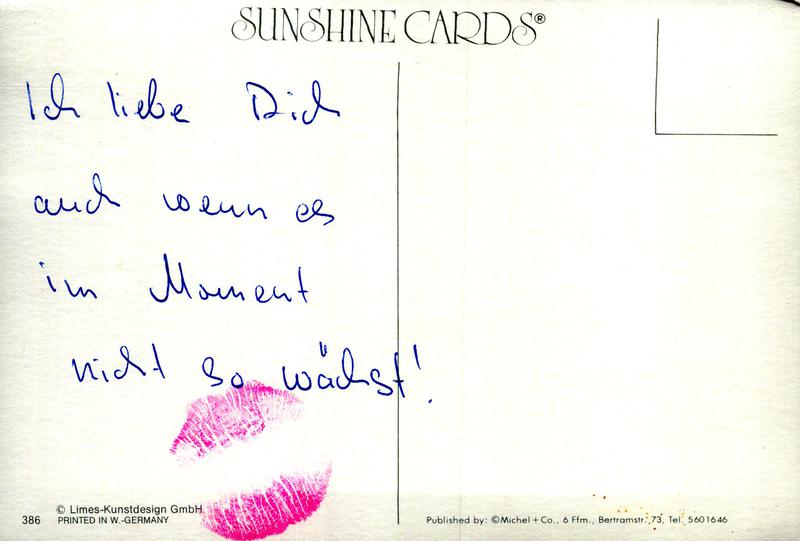 SUNSHINE CARDS®
Ich liebe Dich
auch wenn es
im Moment
nicht so wächst!
386
© Limes-Kunstdesign GmbH
PRINTED IN W.-GERMANY
Published by: ©Michel+Co., 6 Ffm., Bertramstr. 73, Tel. 5601646